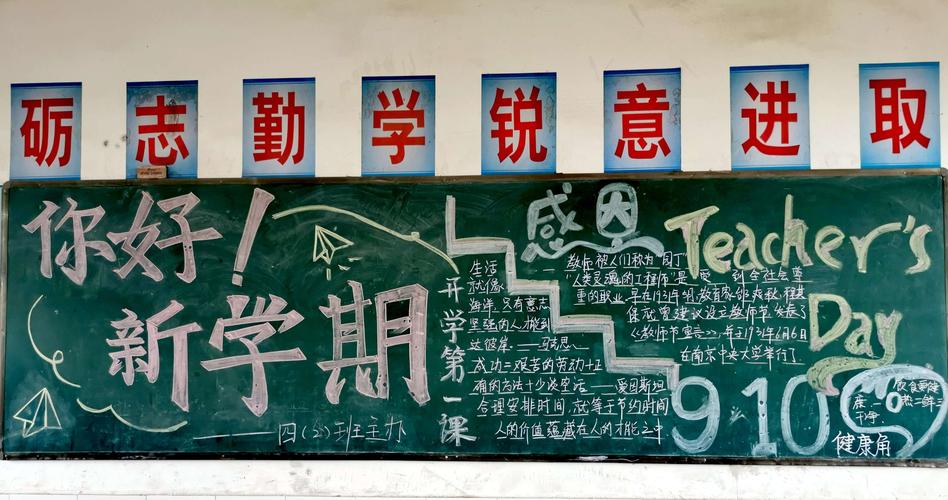 砺志勤学锐意进取
你好!
新学期
——四(2)班主办
开学第一课
生活
就像
海洋,只有意志
坚强的人才能到
达彼岸——马克思
成功=艰苦的劳动+正
确的方法+少谈空话——爱因斯坦
合理安排时间,就等于节约时间
人的价值蕴藏在人的才能之中
感恩
教师被人们称为"园丁"
"人类灵魂的工程师"是受到全社会尊
重的职业,早在1931年,教育家邰爽秋、程其
保就曾建议设立教师节,发表了
《教师节宣言》,并于1931年6月6日
在南京中央大学举行了
Teacher's
Day
9.10
健康角